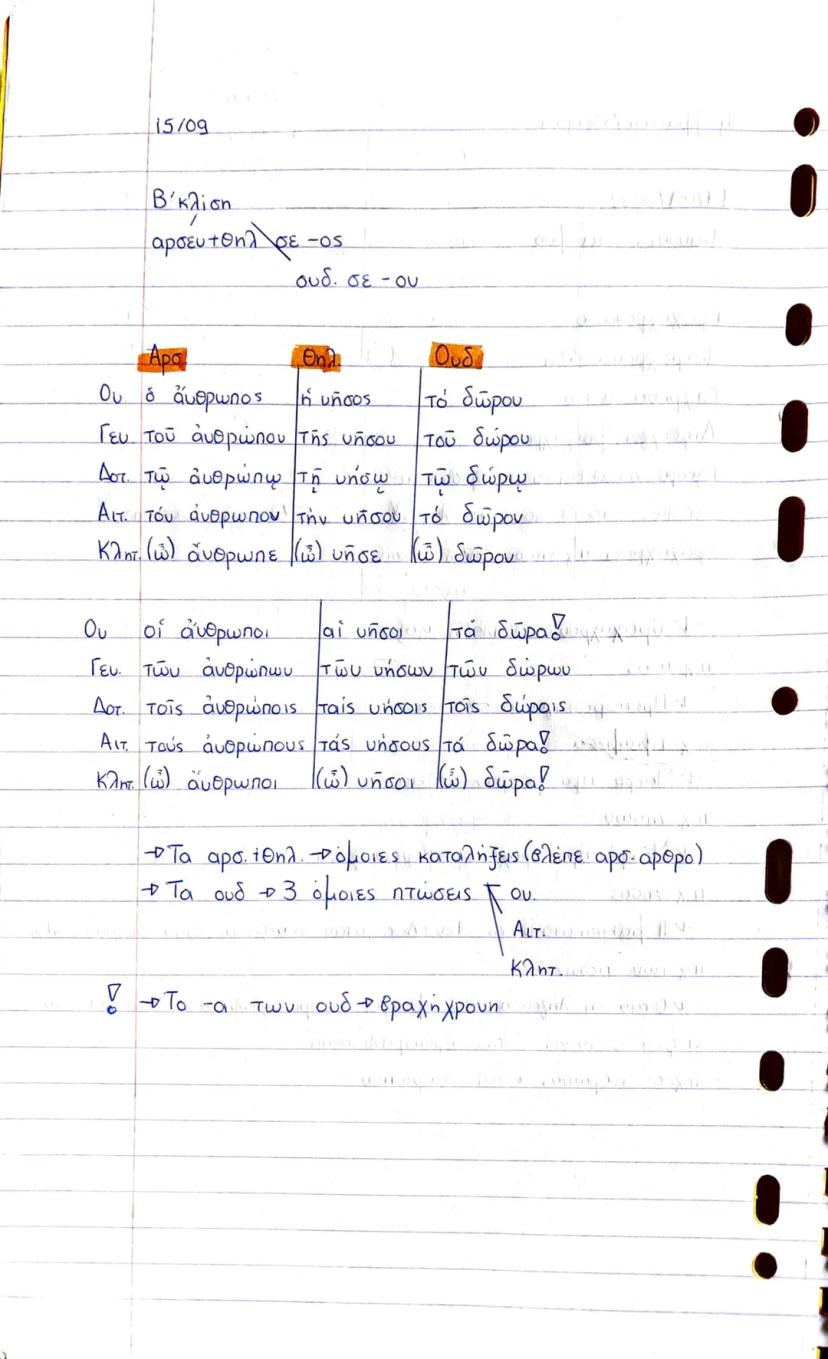 15/09
Β' κλίση
αρσεν+θηλ σε -ος
ουδ. σε -ον
Αρσ. Θηλ. Ουδ.
Ον ὁ ἄνθρωπος ἡ νῆσος τό δῶρον
Γεν. τοῦ ἀνθρώπου τῆς νήσου τοῦ δώρου
Δοτ. τῷ ἀνθρώπῳ τῇ νήσῳ τῷ δώρῳ
Αιτ. τόν ἄνθρωπον τήν νῆσον τό δῶρον
Κλητ. (ὦ) ἄνθρωπε (ὦ) νῆσε (ὦ) δῶρον
Ον οἱ ἄνθρωποι αἱ νῆσοι τά δῶρα!
Γεν. τῶν ἀνθρώπων τῶν νήσων τῶν δώρων
Δοτ. τοῖς ἀνθρώποις ταῖς νήσοις τοῖς δώροις
Αιτ. τούς ἀνθρώπους τάς νήσους τά δῶρα!
Κλητ. (ὦ) ἄνθρωποι (ὦ) νῆσοι (ὦ) δῶρα!
→ Τα αρσ.+θηλ. → όμοιες καταλήξεις (βλέπε αρσ. αρθρο)
→ Τα ουδ → 3 όμοιες πτώσεις ον.
Αιτ.
Κλητ.
! → Το -α των ουδ → βραχήχρονη